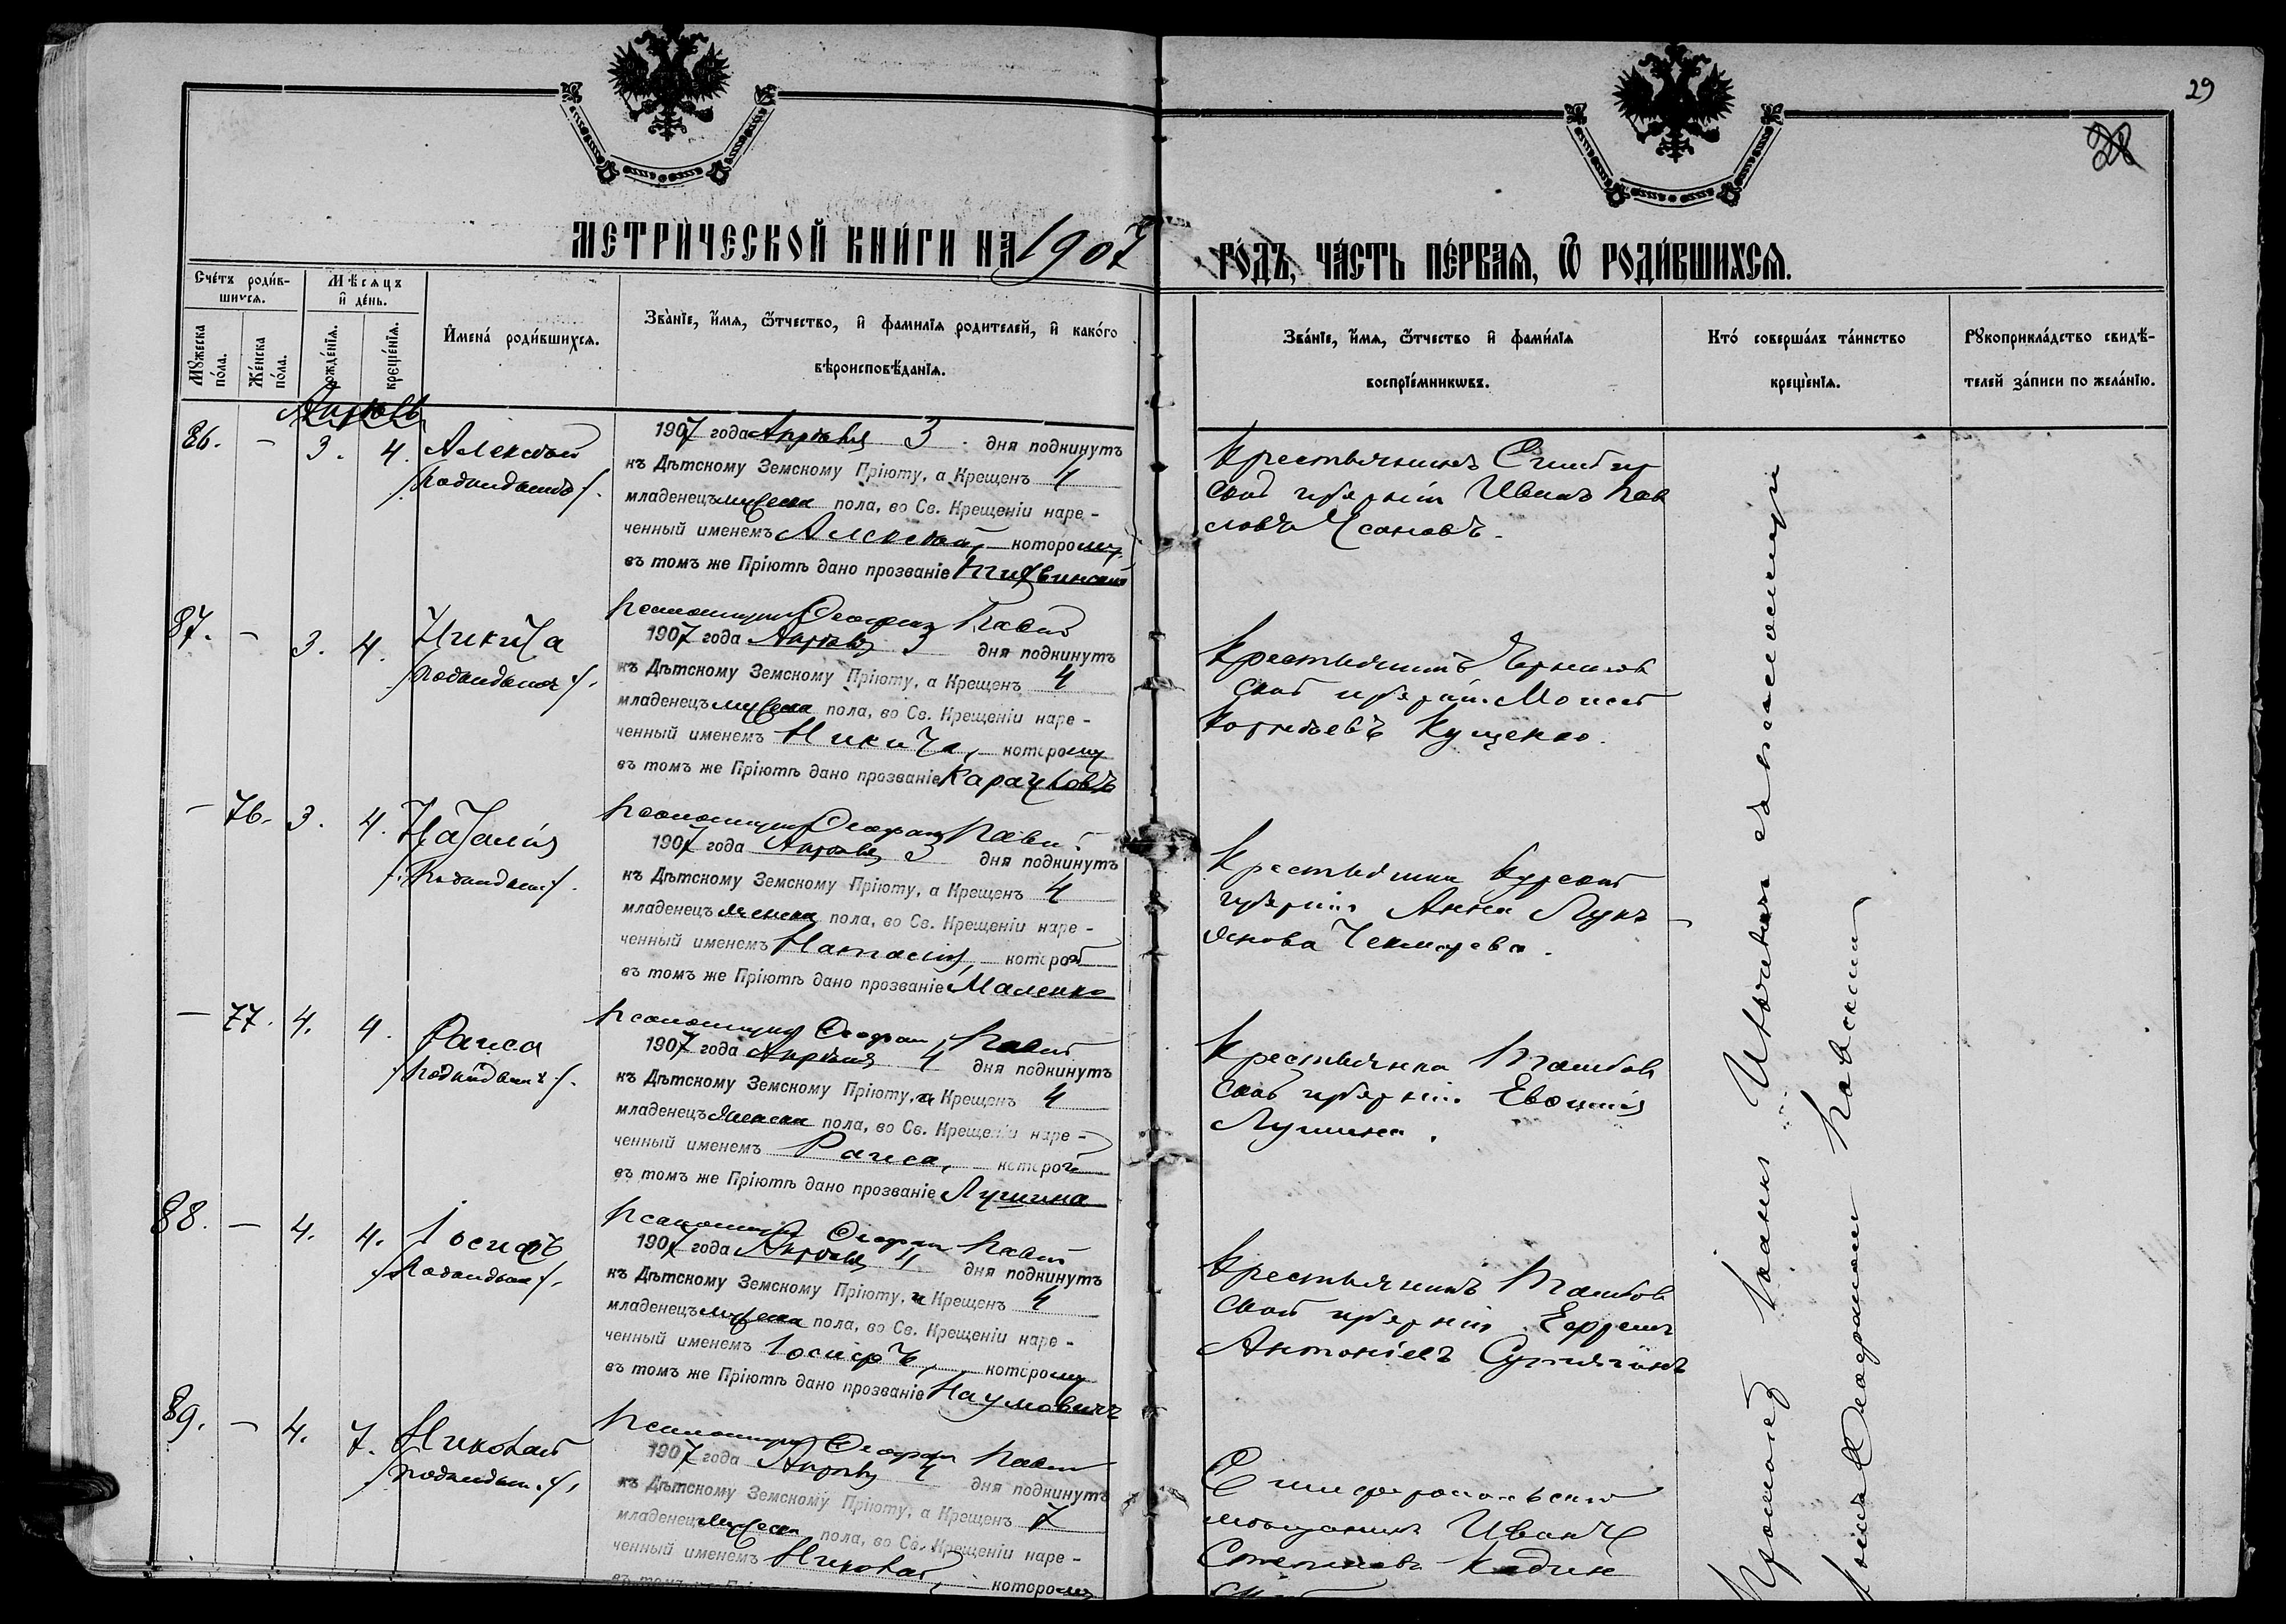 29
28
МЕТРИЧЕСКОЙ КНИГИ НА 1907 ГОДЪ, ЧАСТЬ ПЕРВАЯ, Ѿ РОДИВШИХСЯ.
Счетъ родив-
шихся.
Мѣсяцъ
и день.
Мужеска
пола.
Женска
пола.
рожденія.
крещенія.
Имена родившихся.
Званіе, имя, ѿтчество, и фамилія родителей, и какого
вѣроисповѣданія.
Званіе, имя, ѿтчество и фамилія
воспріемниковъ.
Кто совершалъ таинство
крещенія.
Рукоприкладство свидѣ-
телей записи по желанію.
Апрѣль
86. - 3. 4. Алексѣй
1907 года Апрѣля 3 дня подкинутъ
къ Дѣтскому Земскому Пріюту, а Крещенъ 4
младенецъ мужеска пола, во Св. Крещеніи наре-
ченный именемъ Алексѣй, которому
въ томъ же Пріютѣ дано прозваніе
Крестьянинъ Симбир
ской губерніи Иванъ Пав
ловъ
Псаломщикъ
87. - 3. 4. Никита
1907 года Апрѣля 3 дня подкинутъ
къ Дѣтскому Земскому Пріюту, а Крещенъ 4
младенецъ мужеска пола, во Св. Крещеніи наре-
ченный именемъ Никита, которому
въ томъ же Пріютѣ дано прозваніе Карауловъ
Крестьянинъ Чернигов
ской губерніи Моисей
Корнѣевъ Кущенко.
Псаломщикъ
- 76. 3. 4. Наталія
1907 года Апрѣля 3 дня подкинутъ
къ Дѣтскому Земскому Пріюту, а Крещенъ 4
младенецъ женска пола, во Св. Крещеніи наре-
ченный именемъ Наталія, которой
въ томъ же Пріютѣ дано прозваніе Маленко
Крестьянка Курской
губерніи Анна Лукъ
янова Чекмарева.
Псаломщикъ
- 77. 4. 4. Раиса
1907 года Апрѣля 4 дня подкинутъ
къ Дѣтскому Земскому Пріюту, и Крещенъ 4
младенецъ женска пола, во Св. Крещеніи наре-
ченный именемъ Раиса, которой
въ томъ же Пріютѣ дано прозваніе Лушина
Крестьянка Тамбов
ской губерніи Евдокія
Лушина.
Псаломщикъ
88. - 4. 4. Іосифъ
1907 года Апрѣля 4 дня подкинутъ
къ Дѣтскому Земскому Пріюту, и Крещенъ 4
младенецъ мужеска пола, во Св. Крещеніи наре-
ченный именемъ Іосифъ, которому
въ томъ же Пріютѣ дано прозваніе Наумовичъ
Крестьянинъ Тамбов
ской губерніи Ефремъ
Антоніевъ
Псаломщикъ
89. - 4. 7. Николай
1907 года Апрѣля 4 дня подкинутъ
къ Дѣтскому Земскому Пріюту, а Крещенъ 7
младенецъ мужеска пола, во Св. Крещеніи наре-
ченный именемъ Николай, которому
Симферопольскій
мѣщанинъ Иванъ
Степановъ
Протоіерей Іоаннъ съ псаломщикомъ